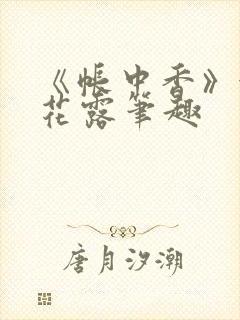 《帐中香》
花露笔趣
唐月汐潮